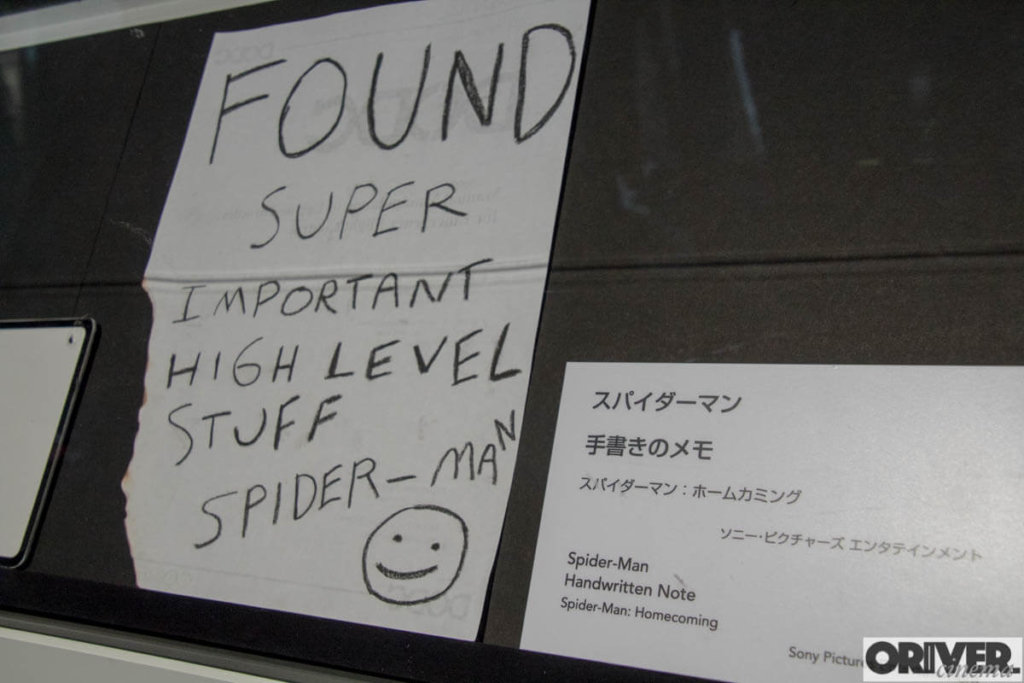 FOUND
SUPER
IMPORTANT
HIGH LEVEL
STUFF
SPIDER-MAN
スパイダーマン
手書きのメモ
スパイダーマン：ホームカミング
ソニー・ピクチャーズ エンタテインメント
Spider-Man
Handwritten Note
Spider-Man: Homecoming
Sony
ORIVER.
cinema